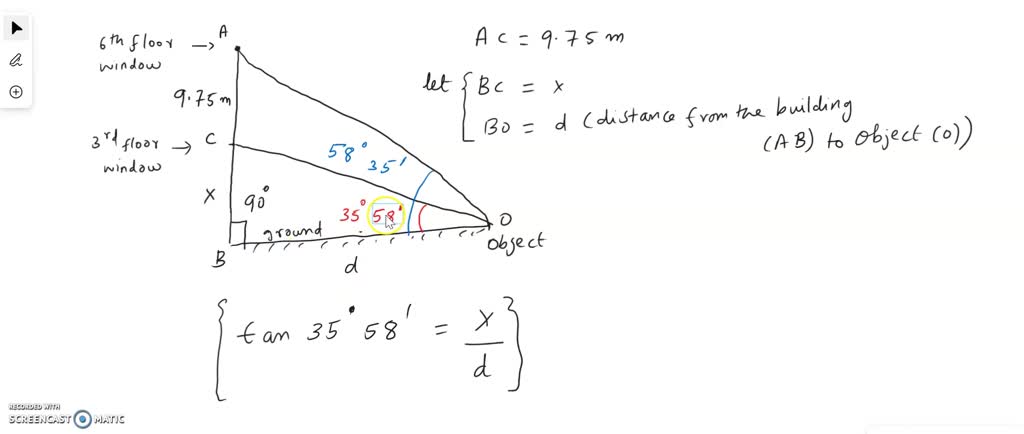 A
6th floor →
window
9.75 m
3rd floor → C
window
X
90°
58° 35'
35° 58'
ground
B
d
O
Object
AC = 9.75 m
let { BC = x
BO = d (distance from the building
(AB) to object (O))
{ tan 35° 58' = x/d }
RECORDED WITH
SCREENCAST MATIC